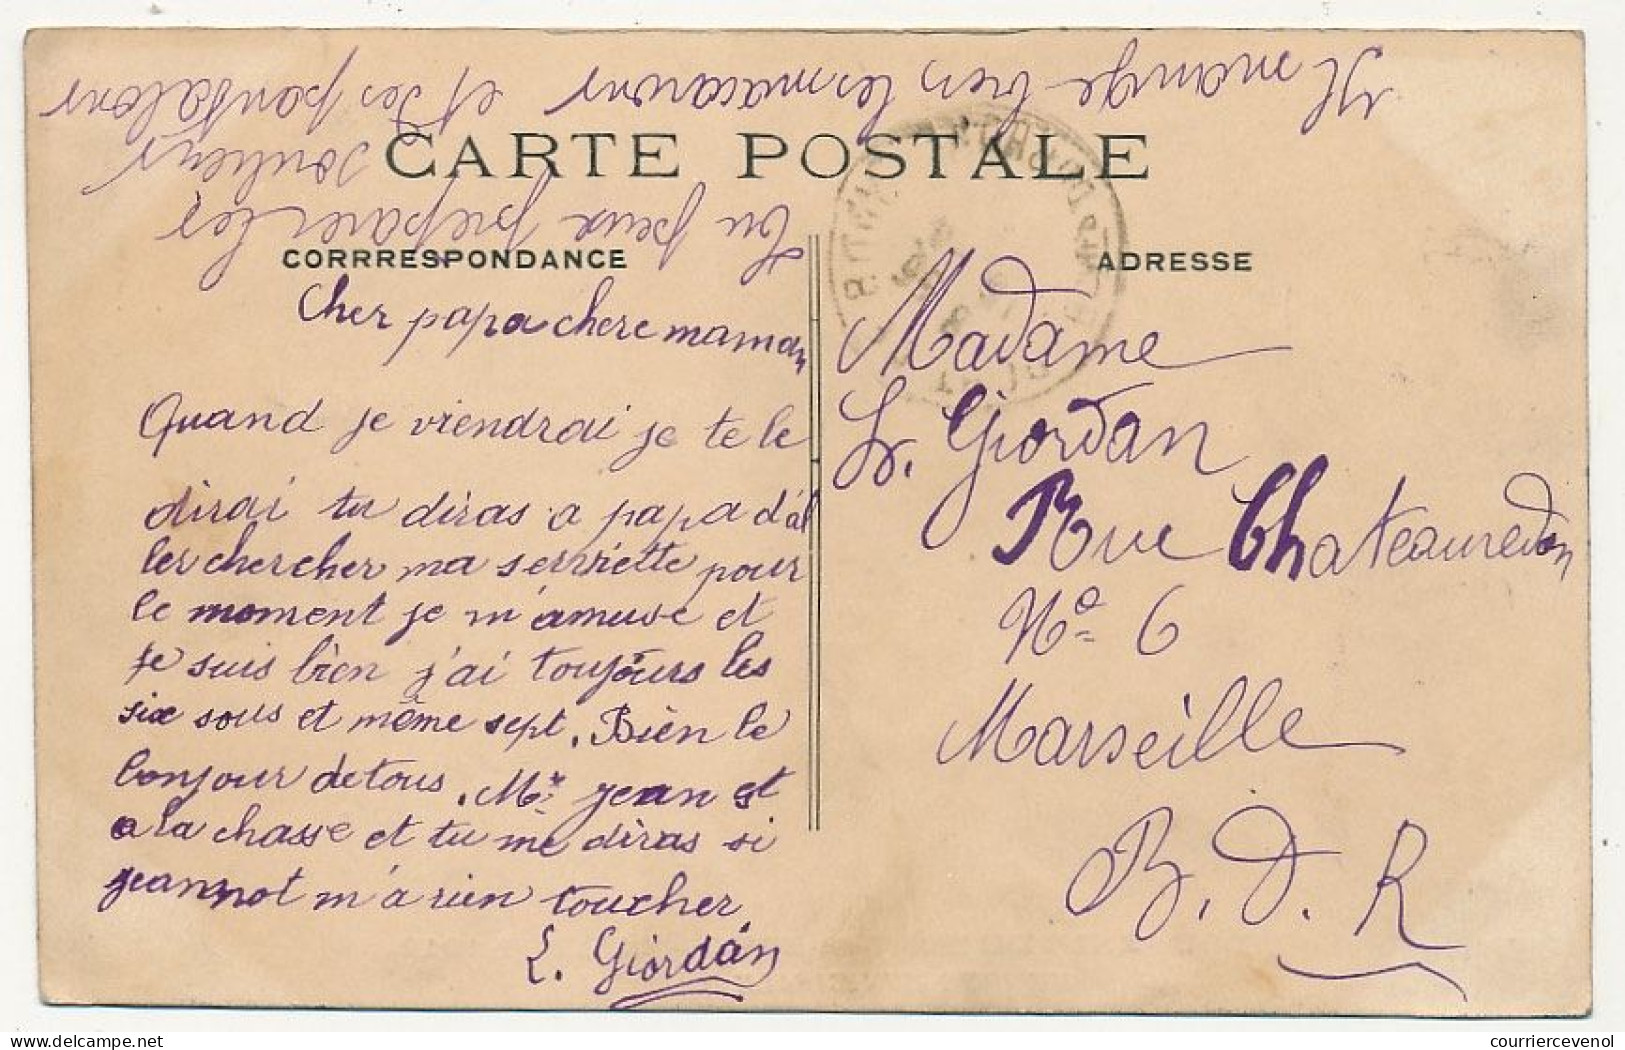 Il mange bien les macarons et des pantalons
CARTE POSTALE
tu peux préparer les
CORRRESPONDANCE
ADRESSE
Cher papa chere maman
Quand je viendrai je te le
dirai tu diras a papa d'al
ler chercher ma serviette pour
le moment je m'amuse et
je suis bien j'ai toujours les
six sous et même sept. Bien le
bonjour de tous. Mr. jean est
a la chasse et tu me diras si
jeannot m'a rien toucher
L. Giordan
Madame
L. Giordan
Rue Chateauredon
No 6
Marseille
B. D. R
courriercevenol
delcampe.net